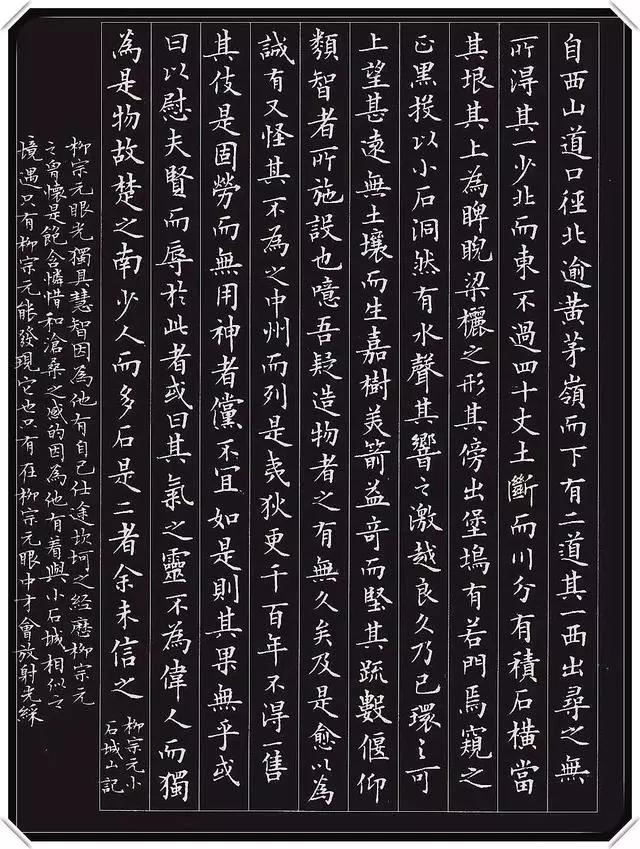 自西山道口徑北逾黃茅嶺而下有二道其一西出尋之無
所得其一少北而東不過四十丈土斷而川分有積石橫當
其垠其上為睥睨梁欐之形其傍出堡塢有若門焉窺之
正黑投以小石洞然有水聲其響之激越良久乃已環之可
上望甚遠無土壤而生嘉樹美箭益奇而堅其疏數偃仰
類智者所施設也噫吾疑造物者之有無久矣及是愈以為
誠有又怪其不為之中州而列是夷狄更千百年不得一售
其伎是固勞而無用神者儻不宜如是則其果無乎或
曰以慰夫賢而辱於此者或曰其氣之靈不為偉人而獨
為是物故楚之南少人而多石是二者余未信之
柳宗元小
石城山記
柳宗元眼光獨具慧智因為他有自己仕途坎坷之經歷柳宗元
之曾懷是飽含憐惜和滄桑之感的因為他有着與小石城相似之
境遇只有柳宗元能發現它也只有在柳宗元眼中才會放射光綵